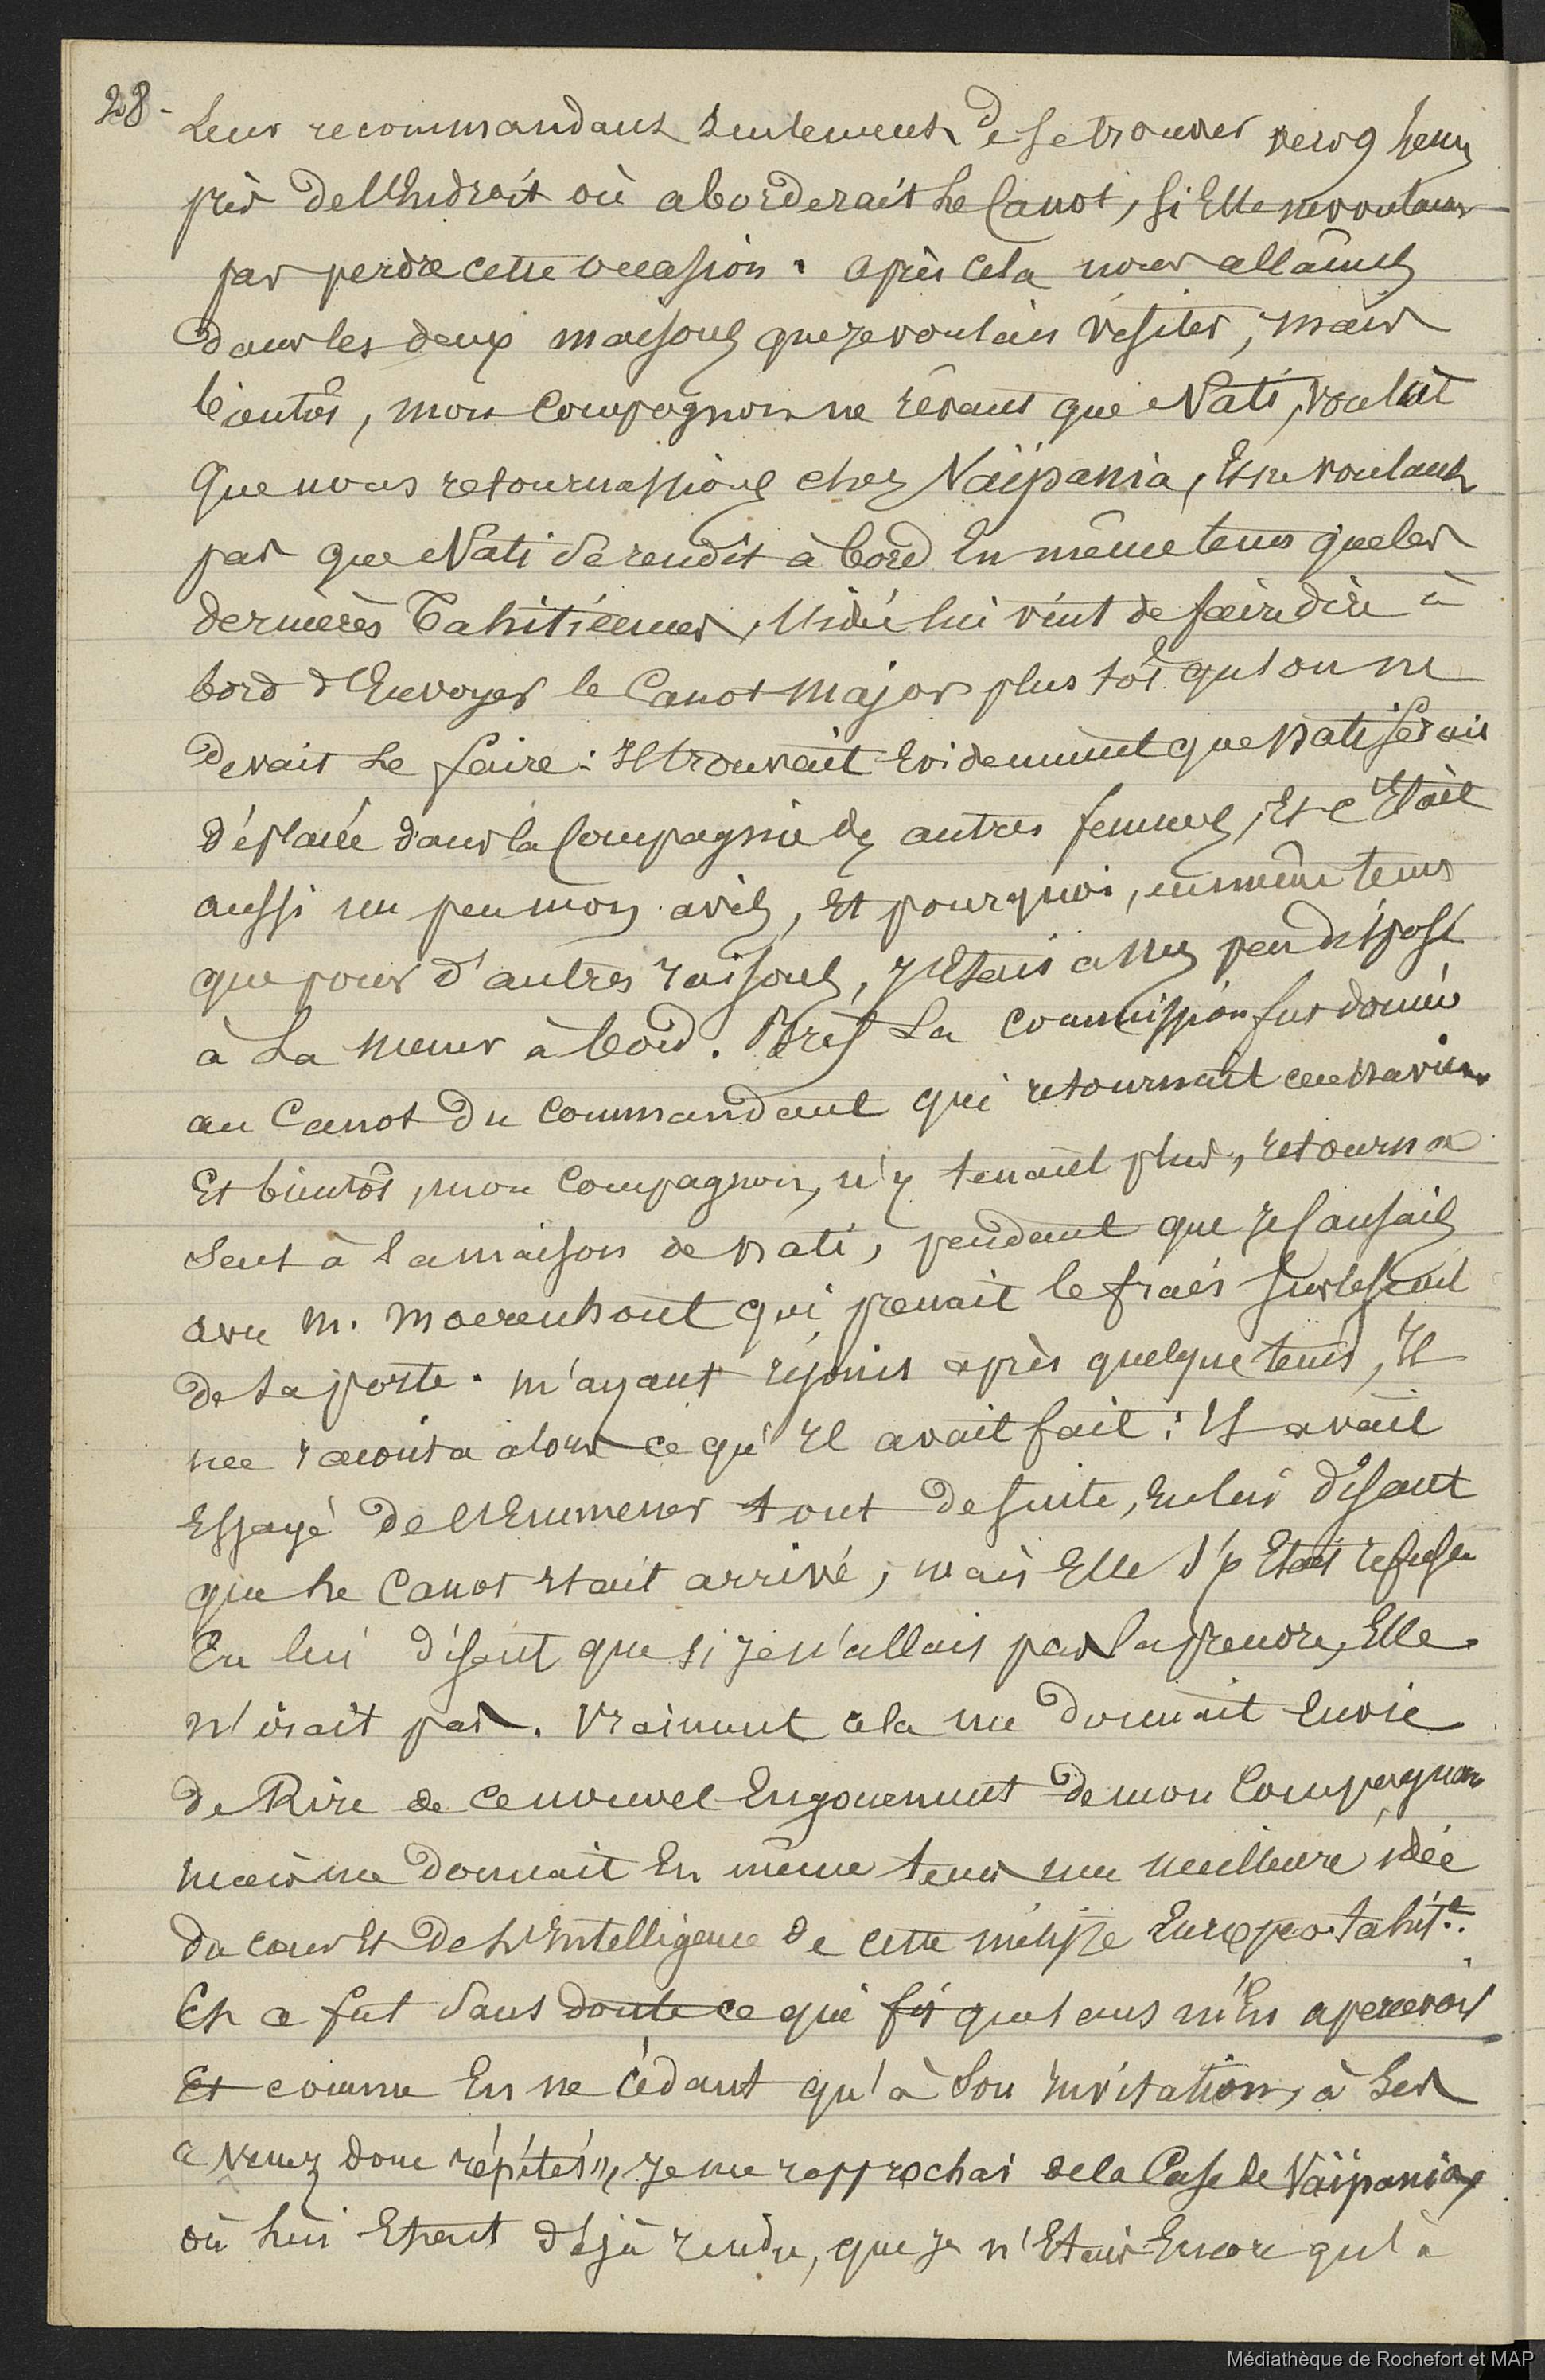 28-
Leur recommandant seulement de se trouver vers 9 heures
près de l'Endroit où aborderait le Canot, si Elle ne voulaient
pas perdre cette occasion. après cela nous allâmes
dans les deux maisons que je voulais visiter, mais
bientôt, mon Compagnon ne rêvant que Nati, voulut
que nous retournassions chez Vaïpania, Et ne voulant
pas que Nati se rendit à bord En même tems que les
dernières Tahitiennes, l'idée lui vint de faire dire à
bord d'Envoyer le Canot major plus tôt qu'on ne
devait le faire : Il trouvait Evidemment que Nati serait
déplacée dans la Compagnie des autres femmes, Et c'Etait
aussi un peu mon avis, Et pourquoi, en même tems
que pour d'autres raisons, j'Etais assez peu disposé
à la mener à bord. Bref La commission fut donnée
au Canot du Commandant qui retournait au navire
Et bientôt, mon Compagnon, n'y tenant plus, retourna
seul à la maison de Nati, pendant que je causais
avec M. Moerenhout qui prenait le frais sur le seuil
de sa porte. m'ayant rejoint après quelque tems, Il
me raconta alors ce qu'Il avait fait : Il avait
Essayé de l'Emmener tout de suite, En lui disant
que le Canot Etait arrivé, mais Elle s'y Etait refusée
En lui disant que si je n'allais pas la prendre, Elle
n'irait pas. Vraiment cela me donnait Envie
de Rire de ce nouvel Engouement de mon Compagnon
mais me donnait En même tems une meilleure idée
du cœur Et de l'Intelligence de cette métisse Europeo-tahit.ne
Et ce fut sans doute ce qui fit que sans m'En apercevoir
Et comme En ne cédant qu'à son Invitation, à ses
« Venez donc répétés », je me rapprochai de la Case de Vaïpania,
où lui Etant déjà rendu, que je n'Etais Encore qu'à
Médiathèque de Rochefort et MAP